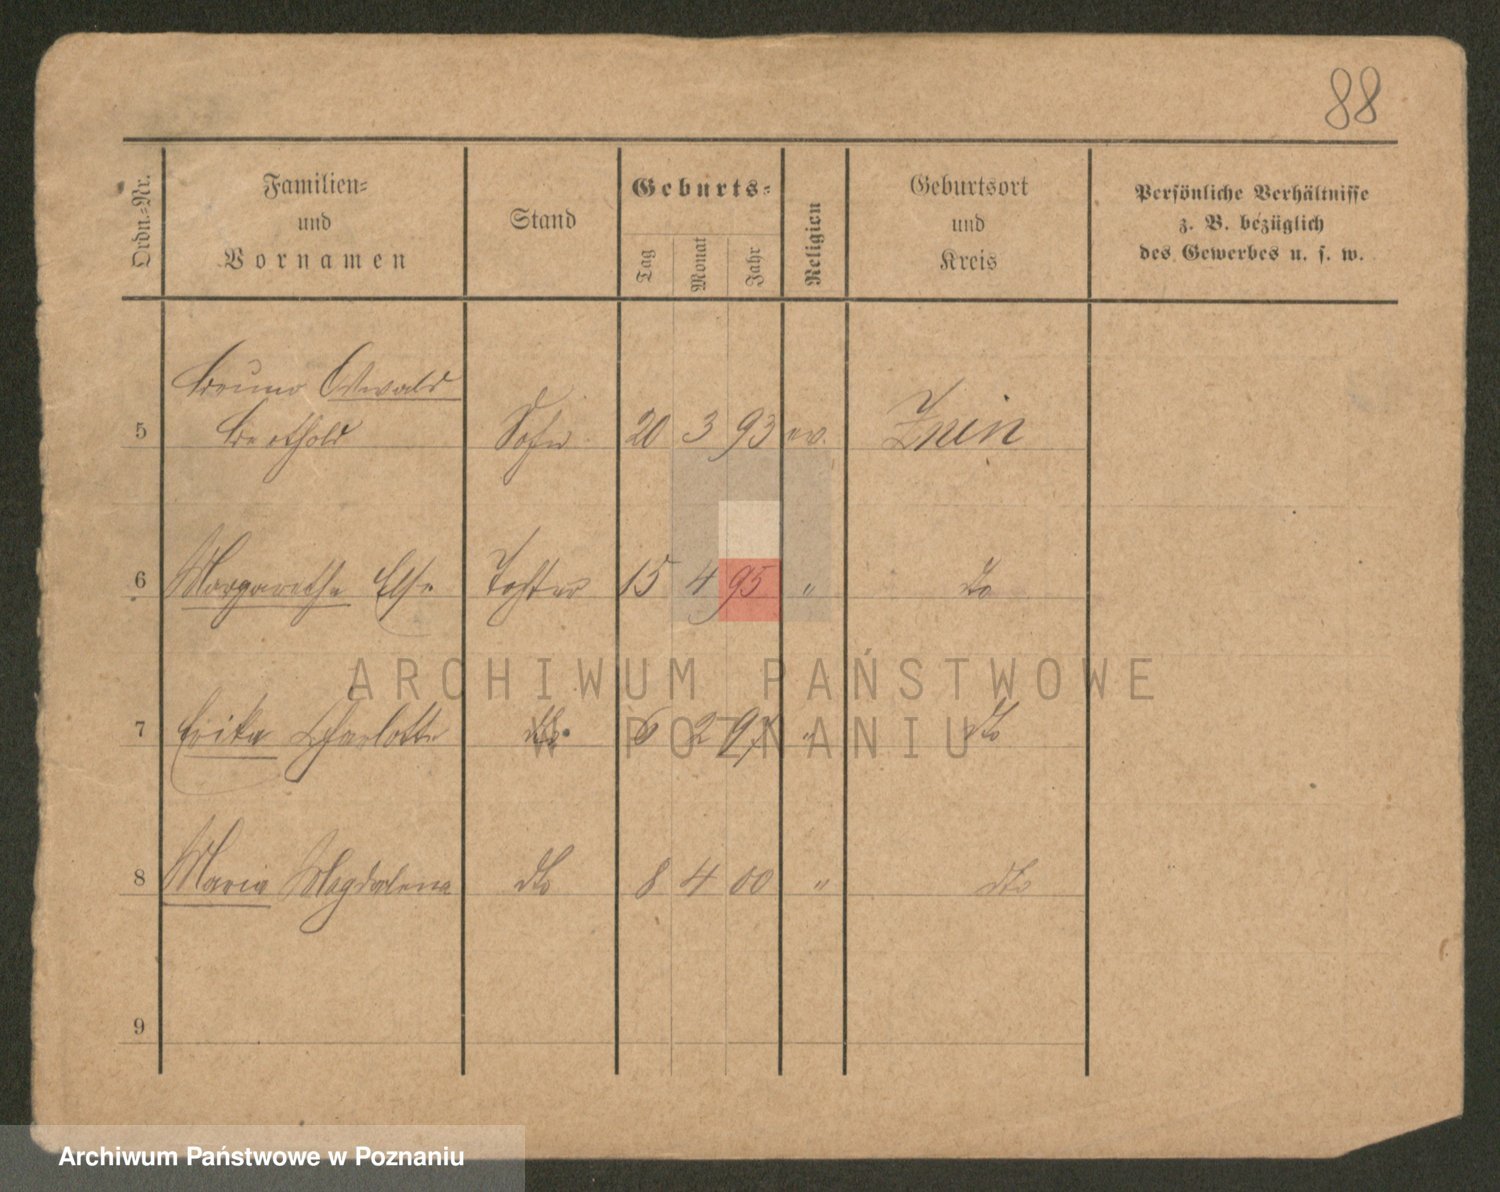 88
Ordn.-Nr.
Familien-
und
Vornamen
Stand
Geburts-
Tag
Monat
Jahr
Religion
Geburtsort
und
Kreis
Persönliche Verhältnisse
z. B. bezüglich
des Gewerbes u. s. w.
Bruno Oswald
5 Berthold Sohn 20 3 93 ev. Znin
6 Margarethe Else Tochter 15 4 95 " do
7 Erika Charlotte dto 6 2 97 " dto
8 Maria Magdalena dto 8 4 00 " dto
9
ARCHIWUM PAŃSTWOWE
W POZNANIU
Archiwum Państwowe w Poznaniu